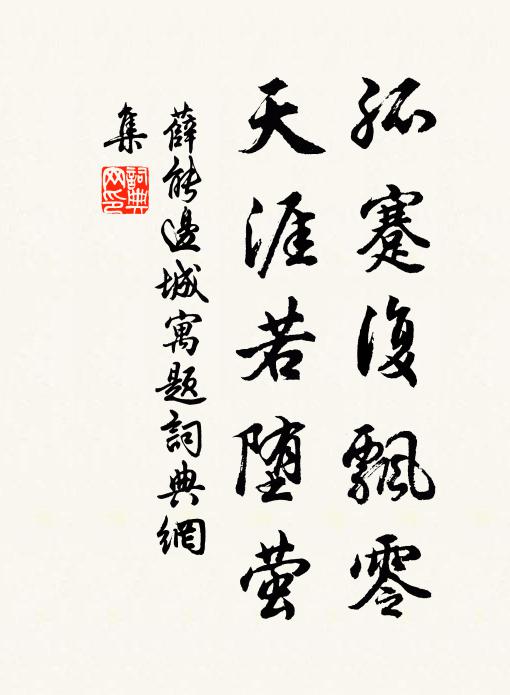 孤蹇復飄零
天涯若堕萤
薛能邊城寓题詞典網
集
詞典
网印